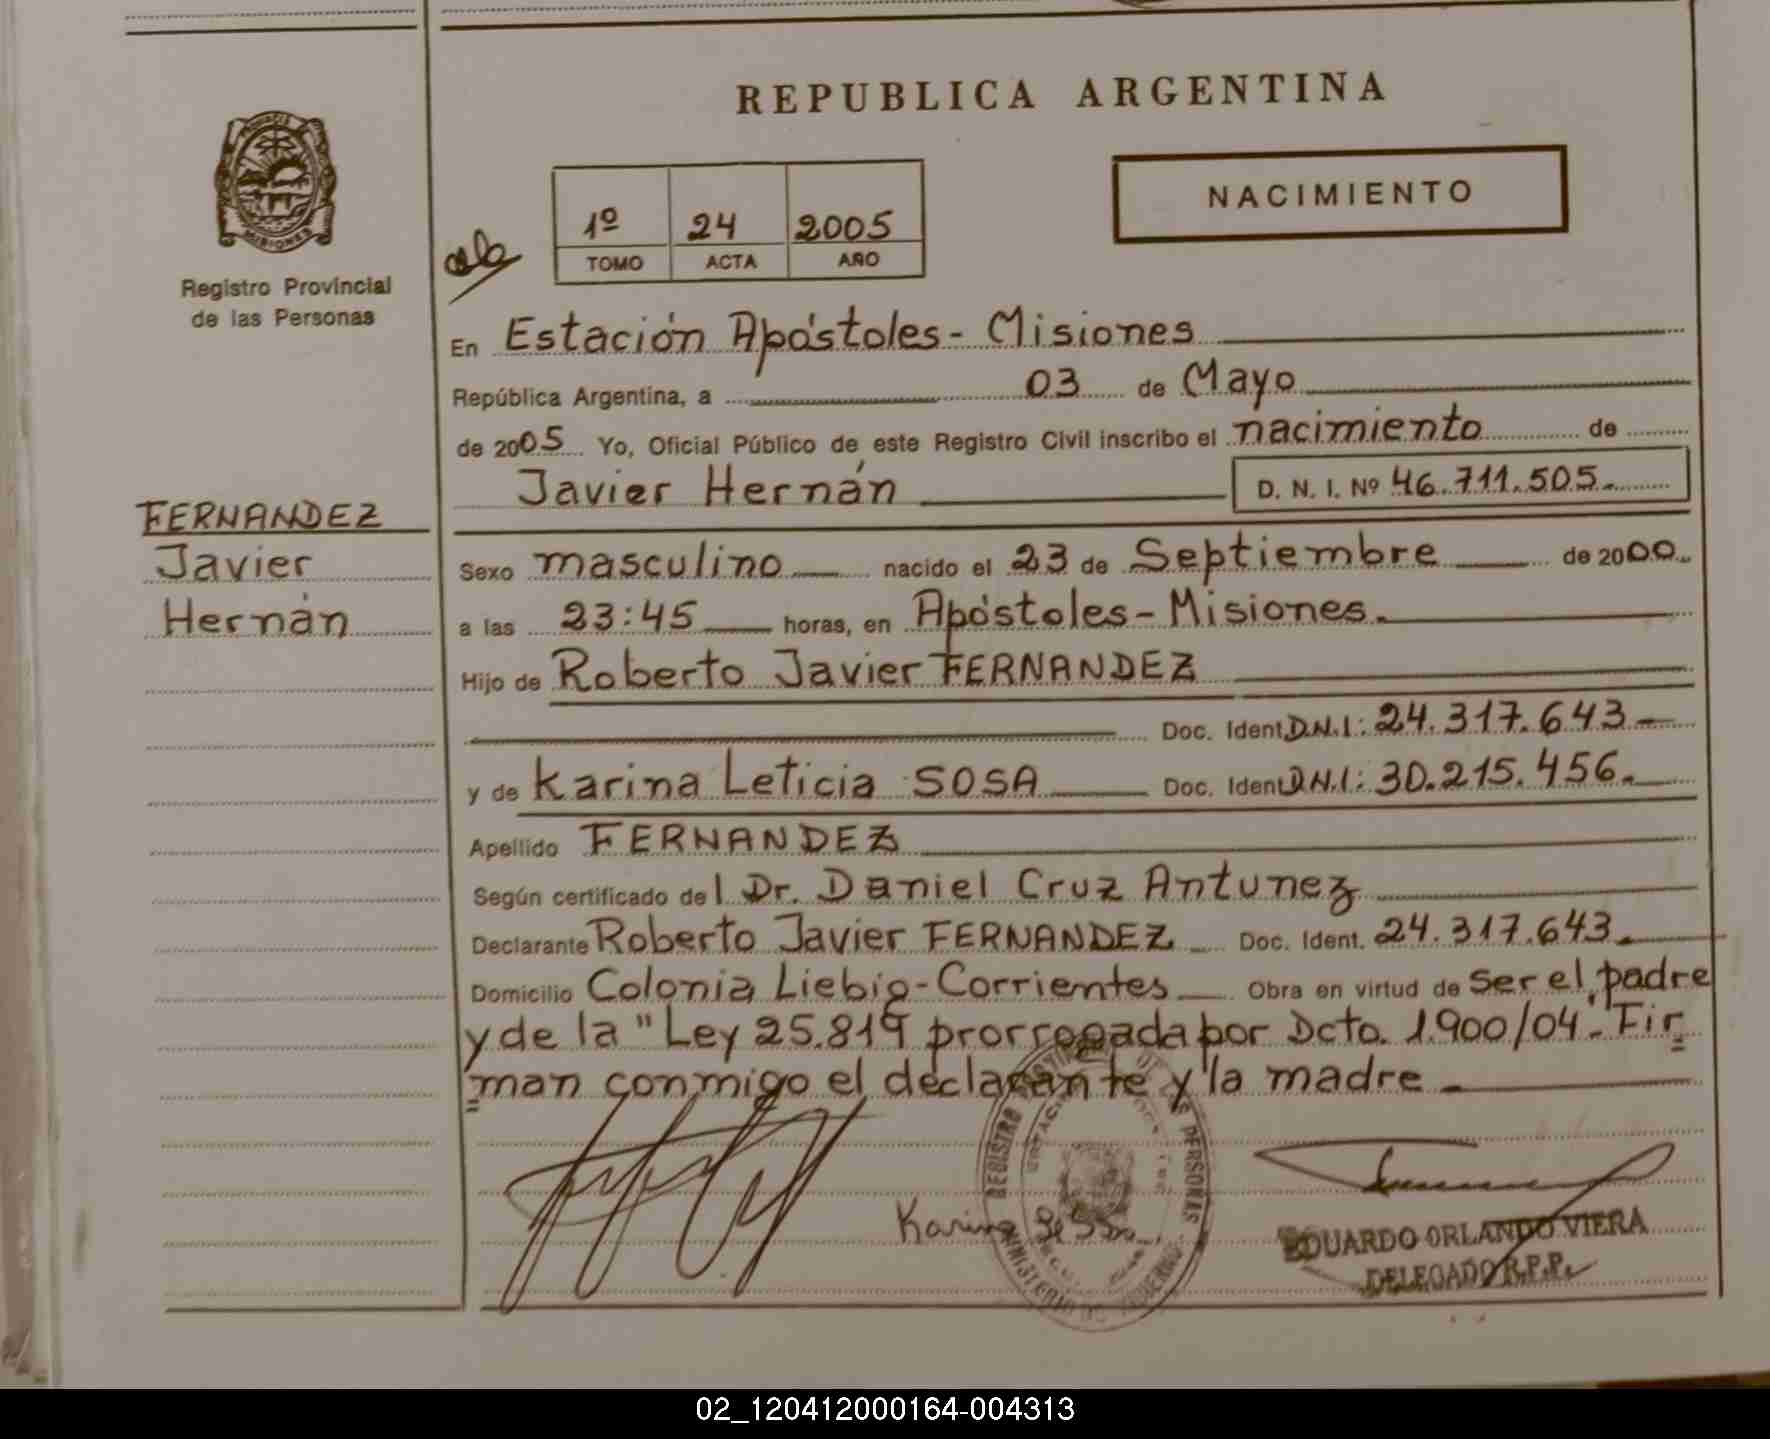 REPUBLICA ARGENTINA
NACIMIENTO
1º 24 2005
TOMO ACTA AÑO
MISIONES
Registro Provincial
de las Personas
En Estación Apóstoles - Misiones
República Argentina, a 03 de Mayo
de 2005 Yo, Oficial Público de este Registro Civil inscribo el nacimiento de
Javier Hernán D. N. I. Nº 46.711.505.-
FERNANDEZ
Javier
Hernán
Sexo masculino nacido el 23 de Septiembre de 2000
a las 23:45 horas, en Apóstoles - Misiones.
Hijo de Roberto Javier FERNANDEZ
Doc. Ident. D.N.I: 24.317.643
y de Karina Leticia SOSA Doc. Ident. D.N.I: 30.215.456.
Apellido FERNANDEZ
Según certificado del Dr. Daniel Cruz Antunez
Declarante Roberto Javier FERNANDEZ Doc. Ident. 24.317.643.
Domicilio Colonia Liebig - Corrientes Obra en virtud de ser el padre
y de la "Ley 25.819 prorrogada por Dcto. 1.900/04". Fir=
=man conmigo el declarante y la madre.
REGISTRO DE LAS PERSONAS
MINISTERIO DE GOBIERNO
Karina
EDUARDO ORLANDO VIERA
DELEGADO R.P.P.
02_120412000164-004313